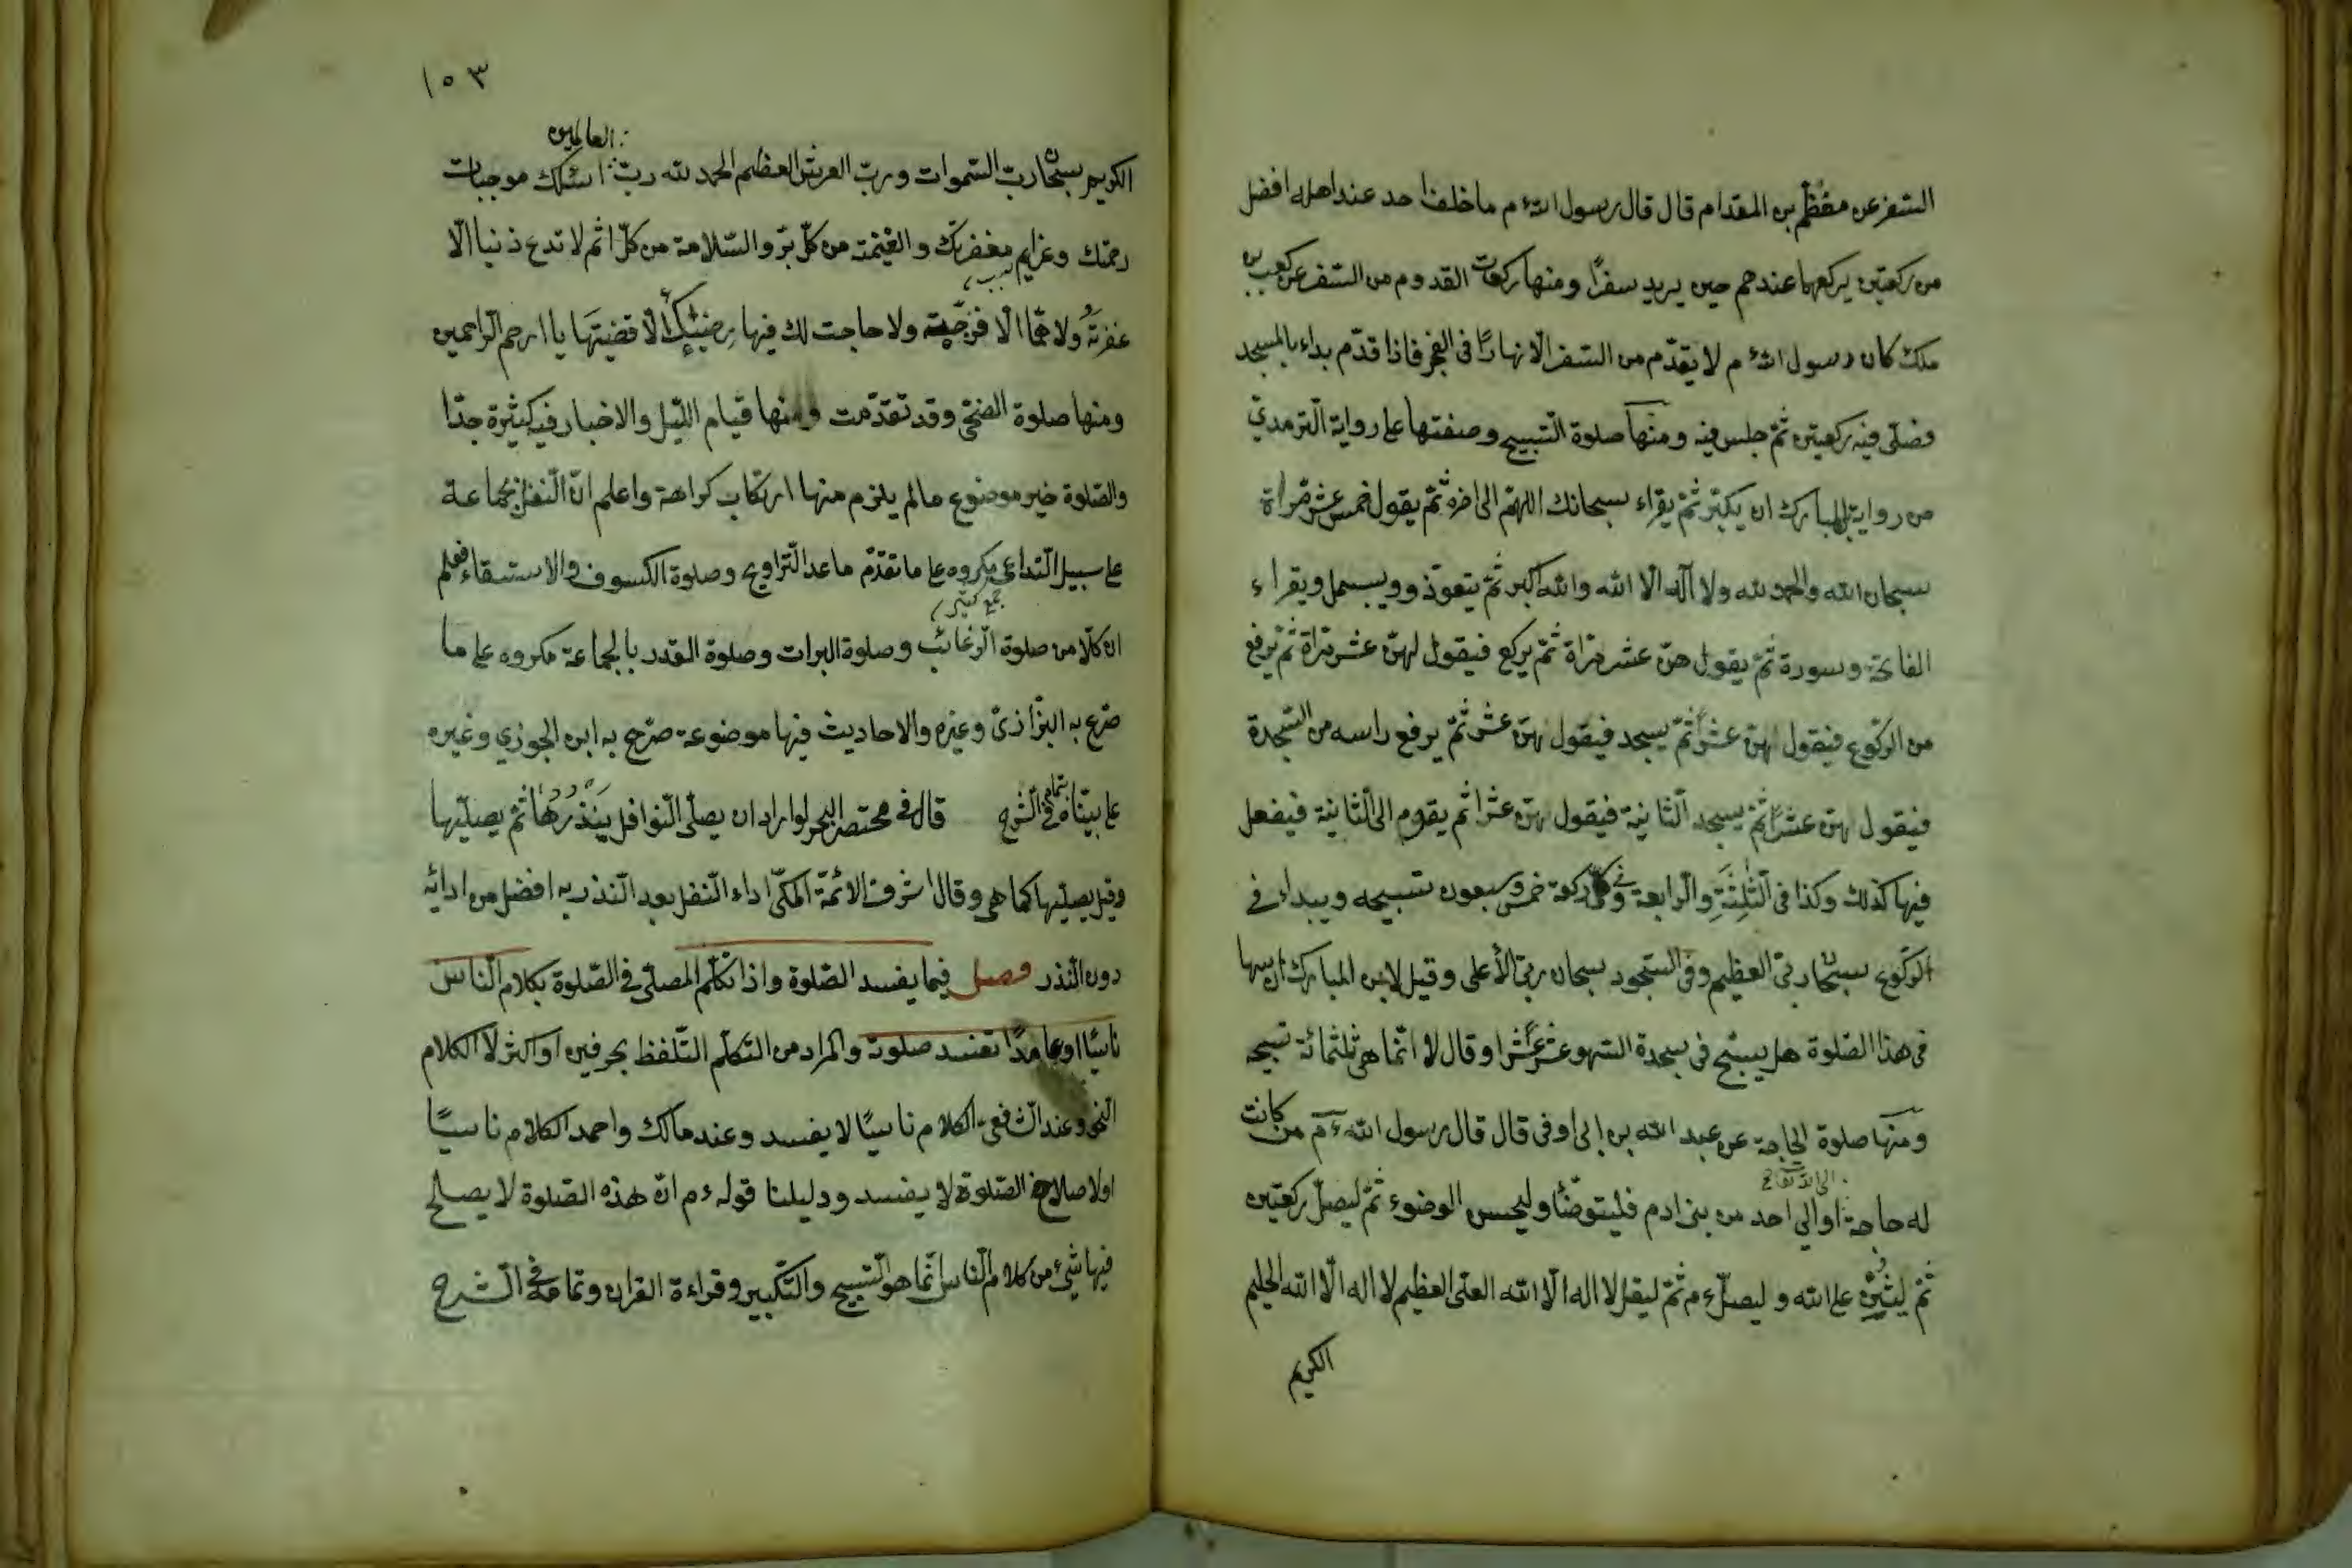 السفر عن مقطم بن المقدام قال قال رسول الله ءم ما خلف احد عند اهله افضل
من ركعتين يركعهما عندهم حين يريد سفرًا ومنها ركعات القدوم من السفر عن كعب بن
ملك كان رسول الله ءم لا يقدم من السفر الا نهارًا فى الفجر فاذا قدم بداء بالمسجد
فصلى فيه ركعتين ثم جلس فيه ومنها صلوة التسبيح وصفتها على رواية الترمدي
من رواية المبارك ان يكبّر ثم يقراء سبحانك اللهم الى اخره ثم يقول خمس عشر مراة
سبحان الله والحمد لله ولا اله الا الله والله اكبر ثم يتعوّذ وويبسمل ويقراء
الفاتحة وسورة ثم يقول هنّ عشر مراة ثم يركع فيقول لهنّ عشر مراة ثم يرفع
من الركوع فيقول لهنّ عشرًا ثم يسجد فيقول لهن عشر ثم يرفع راسه من السجدة
فيقول لهن عشرًا ثم يسجد الثانية فيقول لهن عشرا ثم يقوم الى الثانية فيفعل
فيها كذلك وكذا فى الثلثة والرابعة وفى كل ركعة خمس وسبعون تسبيحه ويبداء فى
الركوع سبحان ربى العظيم وفى السجود سبحان ربى الأعلى وقيل لابن المبارك ان سها
فى هذا الصلوة هل يسبّح فى سجدة السهو عشرًا عشرا وقال لا انما هى ثلثمائة تسبيحه
ومنها صلوة الحاجة عن عبد الله بن ابى اوفى قال قال رسول الله ءم من كانت
الى الله تعالى
له حاجة اوالى احد من بنى ادم فليتوضّأ وليحسن الوضوء ثم ليصلّ ركعتين
ثم ليثن على الله و ليصلّ ءم ثم ليقل لا اله الّا الله العلى العظيم لا اله الّا الله الحليم
الكريم
١٥٣
العالمين
الكريم سبحان رب السموات ورب العرش العظيم الحمد لله رب اسئلك موجبات
رحمتك وعزايم مغفرتك والغنيمة من كلّ برّ والسلامة من كلّ اثم لا تدع ذنبا الّا
غفرته ولا همّا الّا فرّجته ولا حاجت لك فيها رضىً الّا قضيتها يا ارحم الراحمين
ومنها صلوة الضحى وقد تقدّمت ومنها قيام الليل والاخبار فيه كثيرة جدّا
والصلوة خير موضوع مالم يلزم منها ارتكاب كراهة واعلم انّ النفل بجماعة
على سبيل التداعى مكروه على ما تقدّم ماعد التراويح وصلوة الكسوف والاستسقاء فعلم
جمع كثير
ان كلّا من صلوة الرغائب وصلوة البرات وصلوة القدر بالجماعة مكروه على ما
صرّح به البزّازىّ وغيره والاحاديث فيها موضوعة صرّح به ابن الجوزي وغيره
على بيّناه بتمامه فى الشرح قال فى مختصر البحر لو اراد ان يصلّى النوافل ينذرها ثم يصليها
وقيل يصليها كما هى وقال اشرف الائمّة المكىّ اداء النفل بعد النذر به افضل من ادائه
دون النذر فصل فيما يفسد الصلوة واذا تكلّم المصلّى فى الصّلوة بكلام النّاس
ناسيًا او عامدًا تفسد صلوته والمراد من التكلّم التّلفظ بحرفين او اكثر لا الكلام
النحو وعند الشافعى الكلام ناسيًا لا يفسد وعند مالك واحمد الكلام ناسيًا
اولا صلاح الصّلوة لا يفسد ودليلنا قوله ءم انّ هذه الصّلوة لا يصلح
فيها شئ من كلام النّاس انّما هو التسبيح والتّكبير وقراءة القران وتمامه فى الشرح